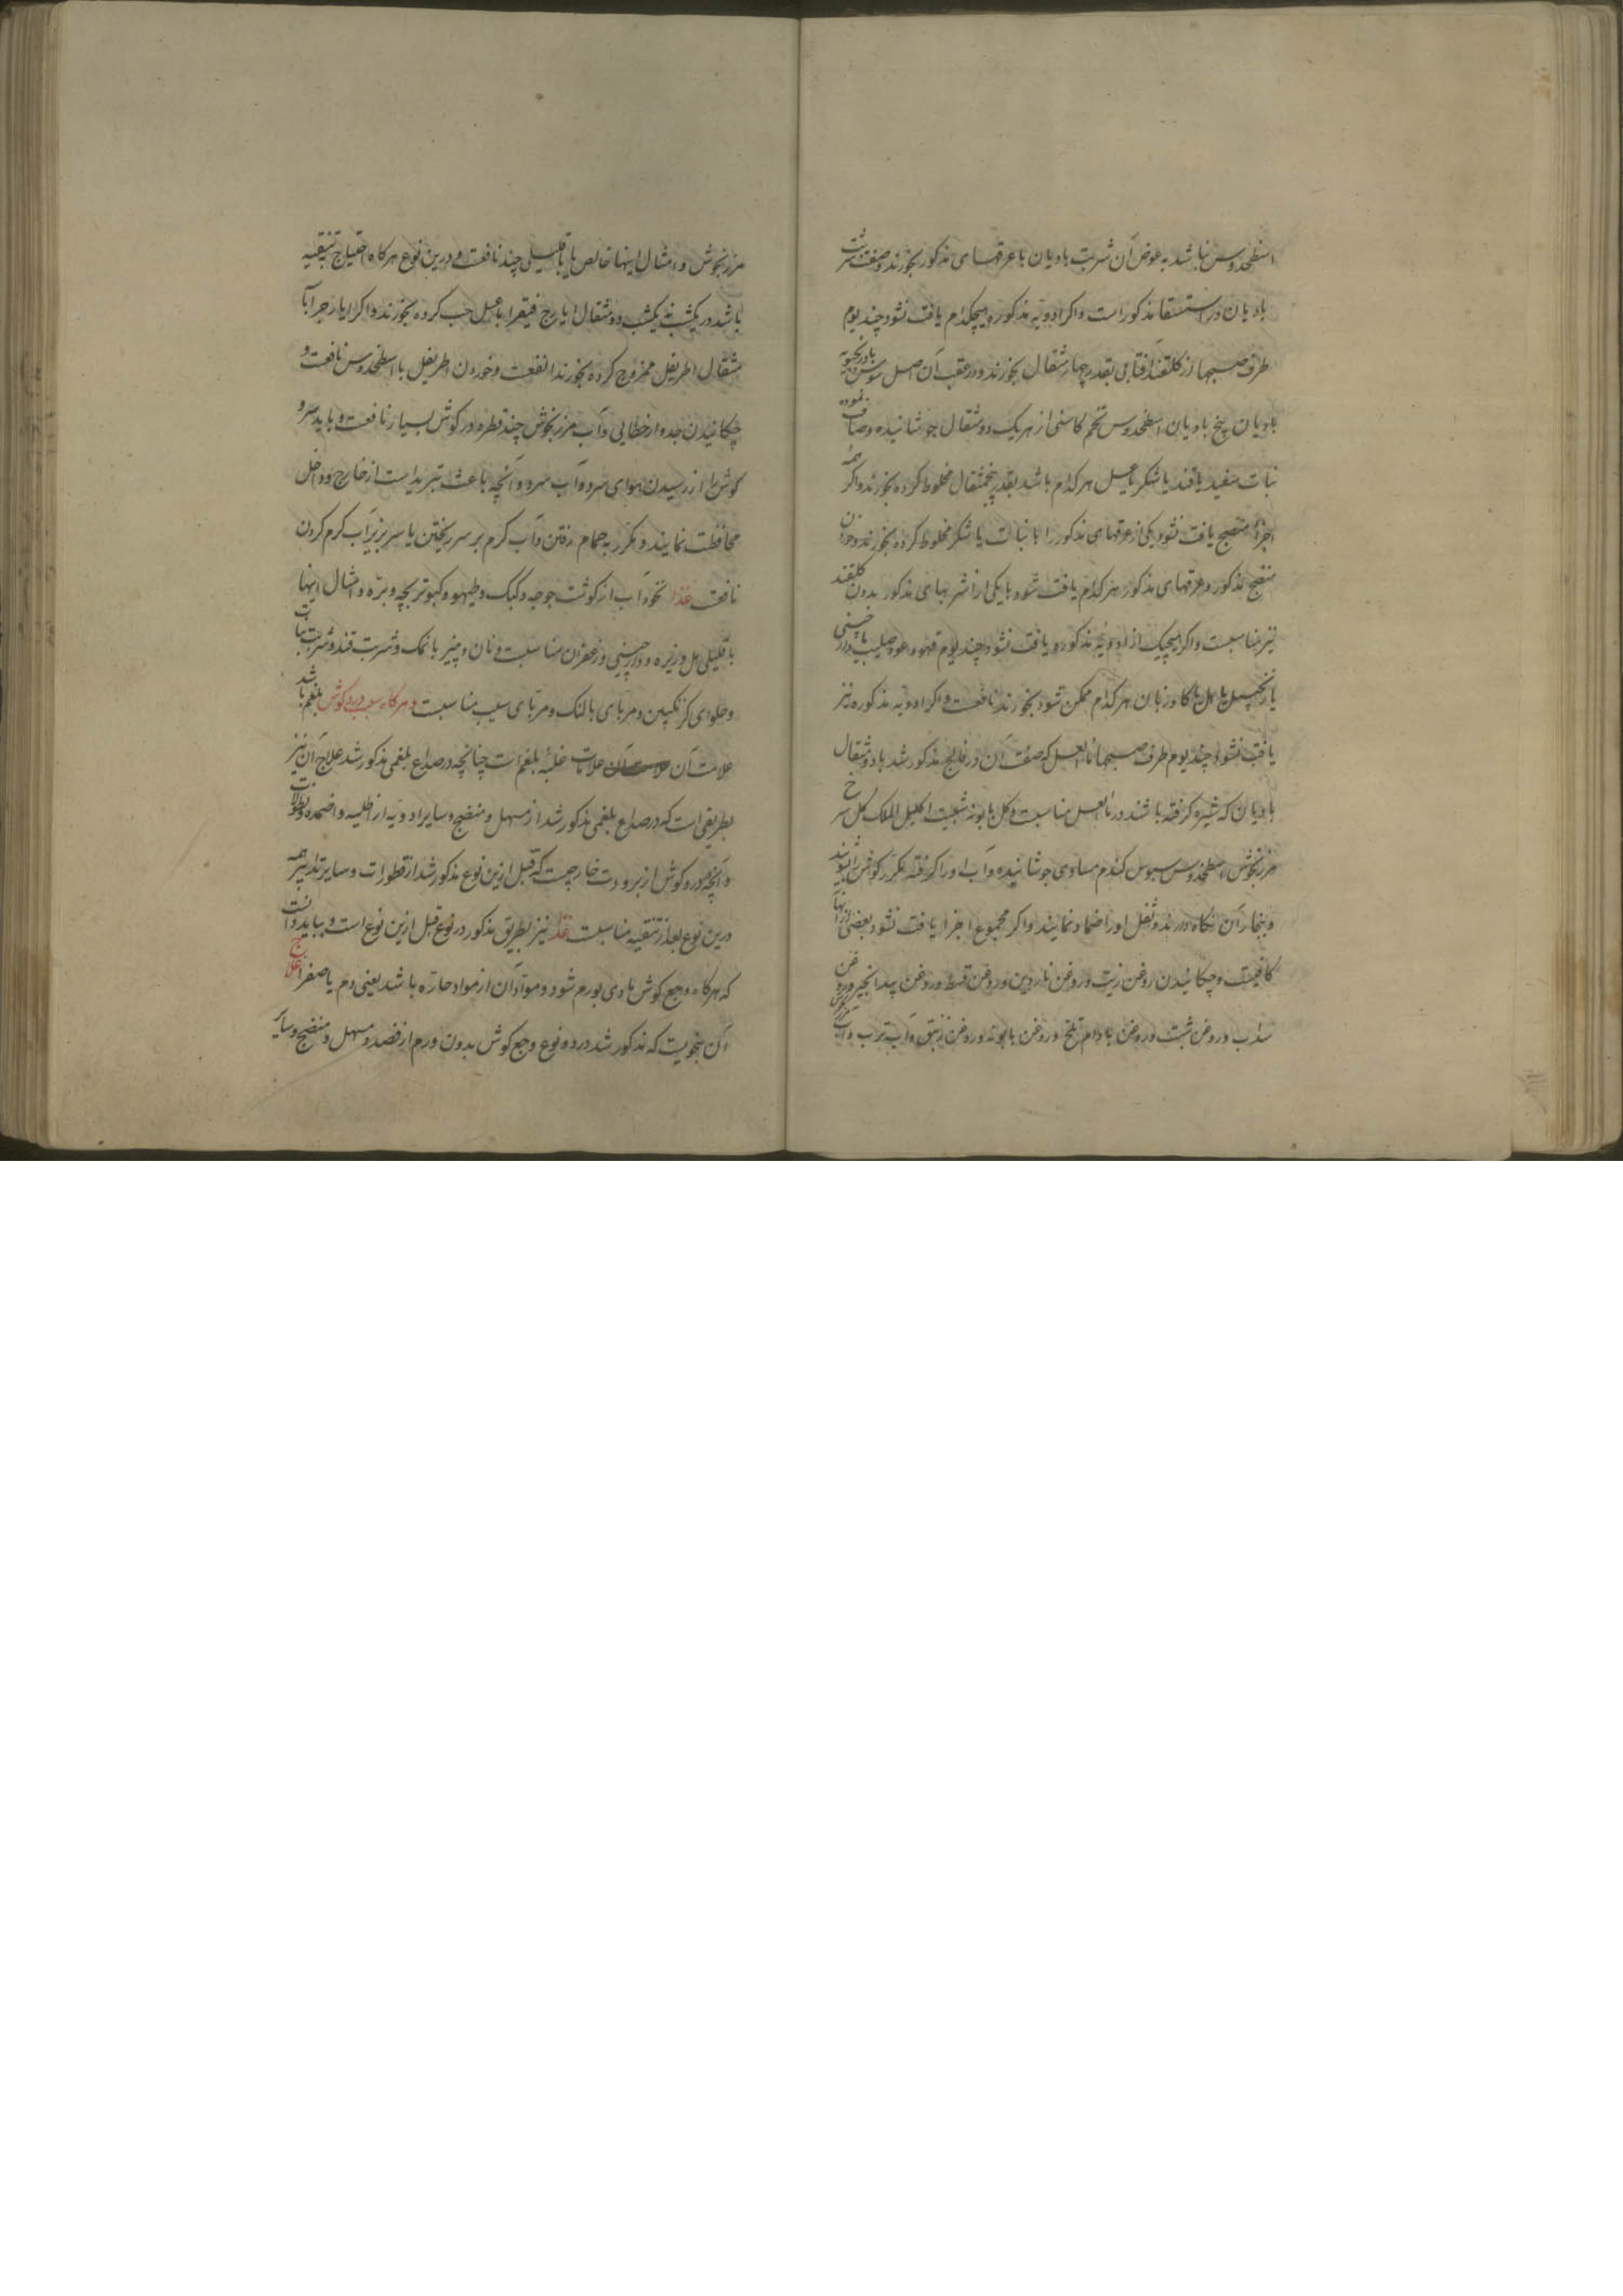 اسطخدوس نباشد به عوض آن شربت بادیان با عرقهای مذکور بخورند وصفت شربت
بادیان در استسقا مذکور است واکر ادویه مذکوره هیچکدام یافت نشود چند یوم
طرف صبحها از کلقند آفتابی بقدر چهار مثقال بخورند ودر عقب آن اصل سوس بادرنجبویه
بادیان بیخ بادیان اسطخدوس تخم کاسنی از هریک دو مثقال جوشانیده وصاف نموده
نبات سفید یا قند یا شکر یا عسل هر کدام باشد بقدر پنجمثقال مخلوط کرده بخورند واکر همه
اجزا منضج یافت نشود یکی از عرقهای مذکور را با نبات یا شکر مخلوط کرده بخورند وخوردن
منضج مذکور وعرقهای مذکور هر کدام یافت شود با یکی از شربهای مذکور بدون کلقند
نیز مناسبست واکر هیچیک از ادویه مذکوره یافت نشود چند یوم قهوه عود صلیب یا دارچینی
یا زنجبیل یا هل یا کاوزبان هر کدام ممکن شود بخورند نافعست واکر ادویه مذکوره نیز
یافت نشود چند یوم طرف صبحها ماءالعسل که صفت آن در فالج مذکور شد با دو مثقال
بادیان که شیره کرفته باشند در ماءالعسل مناسبست وکل بابونه شبت اکلیل الملک کل سرخ
مرزنجوش اسطخدوس سبوس کندم مساوی جوشانیده وآب اورا کرفته مکرر کوش را بشویند
وببخار آن نکاه دارند وثفل اورا ضماد نمایند واکر مجموع اجزا یافت نشود بعضی از آنها
کافیست وچکانیدن روغن زیت وروغن ناردین وروغن قسط وروغن بیدانجیر وروغن
سداب وروغن شبت وروغن بادام تلخ وروغن بابونه وروغن زنبق وآب ترب وآب
مرزنجوش وامثال اینها خالص یا با قلیلی چند نافعست ودرین نوع هرکاه احتیاج بتنقیه
باشد در یکشب نه یکشب دو مثقال ایارج فیقرا با عسل حب کرده بخورند واکر ایارج را با
مثقال اطریفل ممزوج کرده بخورند انفعست وخوردن اطریفل با اسطخدوس نافعست و
چکانیدن جدوار خطایی وآب مرزنجوش چند قطره در کوش بسیار نافعست وباید سر و
کوش را از رسیدن هوای سرد وآب سرد وآنچه باعث تبرید است از خارج وداخل
محافظت نمایند ومکرر به حمام رفتن وآب کرم بر سر ریختن یا سر بزیر آب کرم کردن
نافعست غذا نخودآب از کوشت جوجه وکبک وطیهو وکبوتر بچه وبره وامثال اینها
با قلیلی هل وزیره ودارچینی وزعفران مناسبست ونان وپنیر با نمک وشربت قند وشربت نبات
وحلوای کزنکبین ومربای بالنک ومربای سیب مناسبست وهرکاه سبب درد کوش بلغم باشد
علامت آن علامت آن علامات غلبه بلغم است چنانچه در صداع بلغمی مذکور شد علاج آن نیز
بطریقی است که در صداع بلغمی مذکور شد از مسهل ومنضج وسایر ادویه از اطلیه واضمده ونطولات
وآنچه در درد کوش از برودت خارجست که قبل ازین نوع مذکور شد از قطورات وسایر تدابیر همه
درین نوع بعد از تنقیه مناسبست غذا نیز بطریق مذکور در نوع قبل ازین نوع است وبباید دانست
که هرکاه وجع کوش مادی بورم شود ومواد آن از مواد حاره باشد یعنی دم یا صفرا علاج
آن بنحویست که مذکور شد در دو نوع وجع کوش بدون ورم از فصد ومسهل ومنضج وسایر